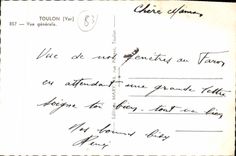 TOULON (Var)
857 — Vue générale.
83
Chère Maman
Vue de nos fenêtres au Faron
en attendant une grande lettre
soigne toi bien, tout va bien
Nos bonnes bises